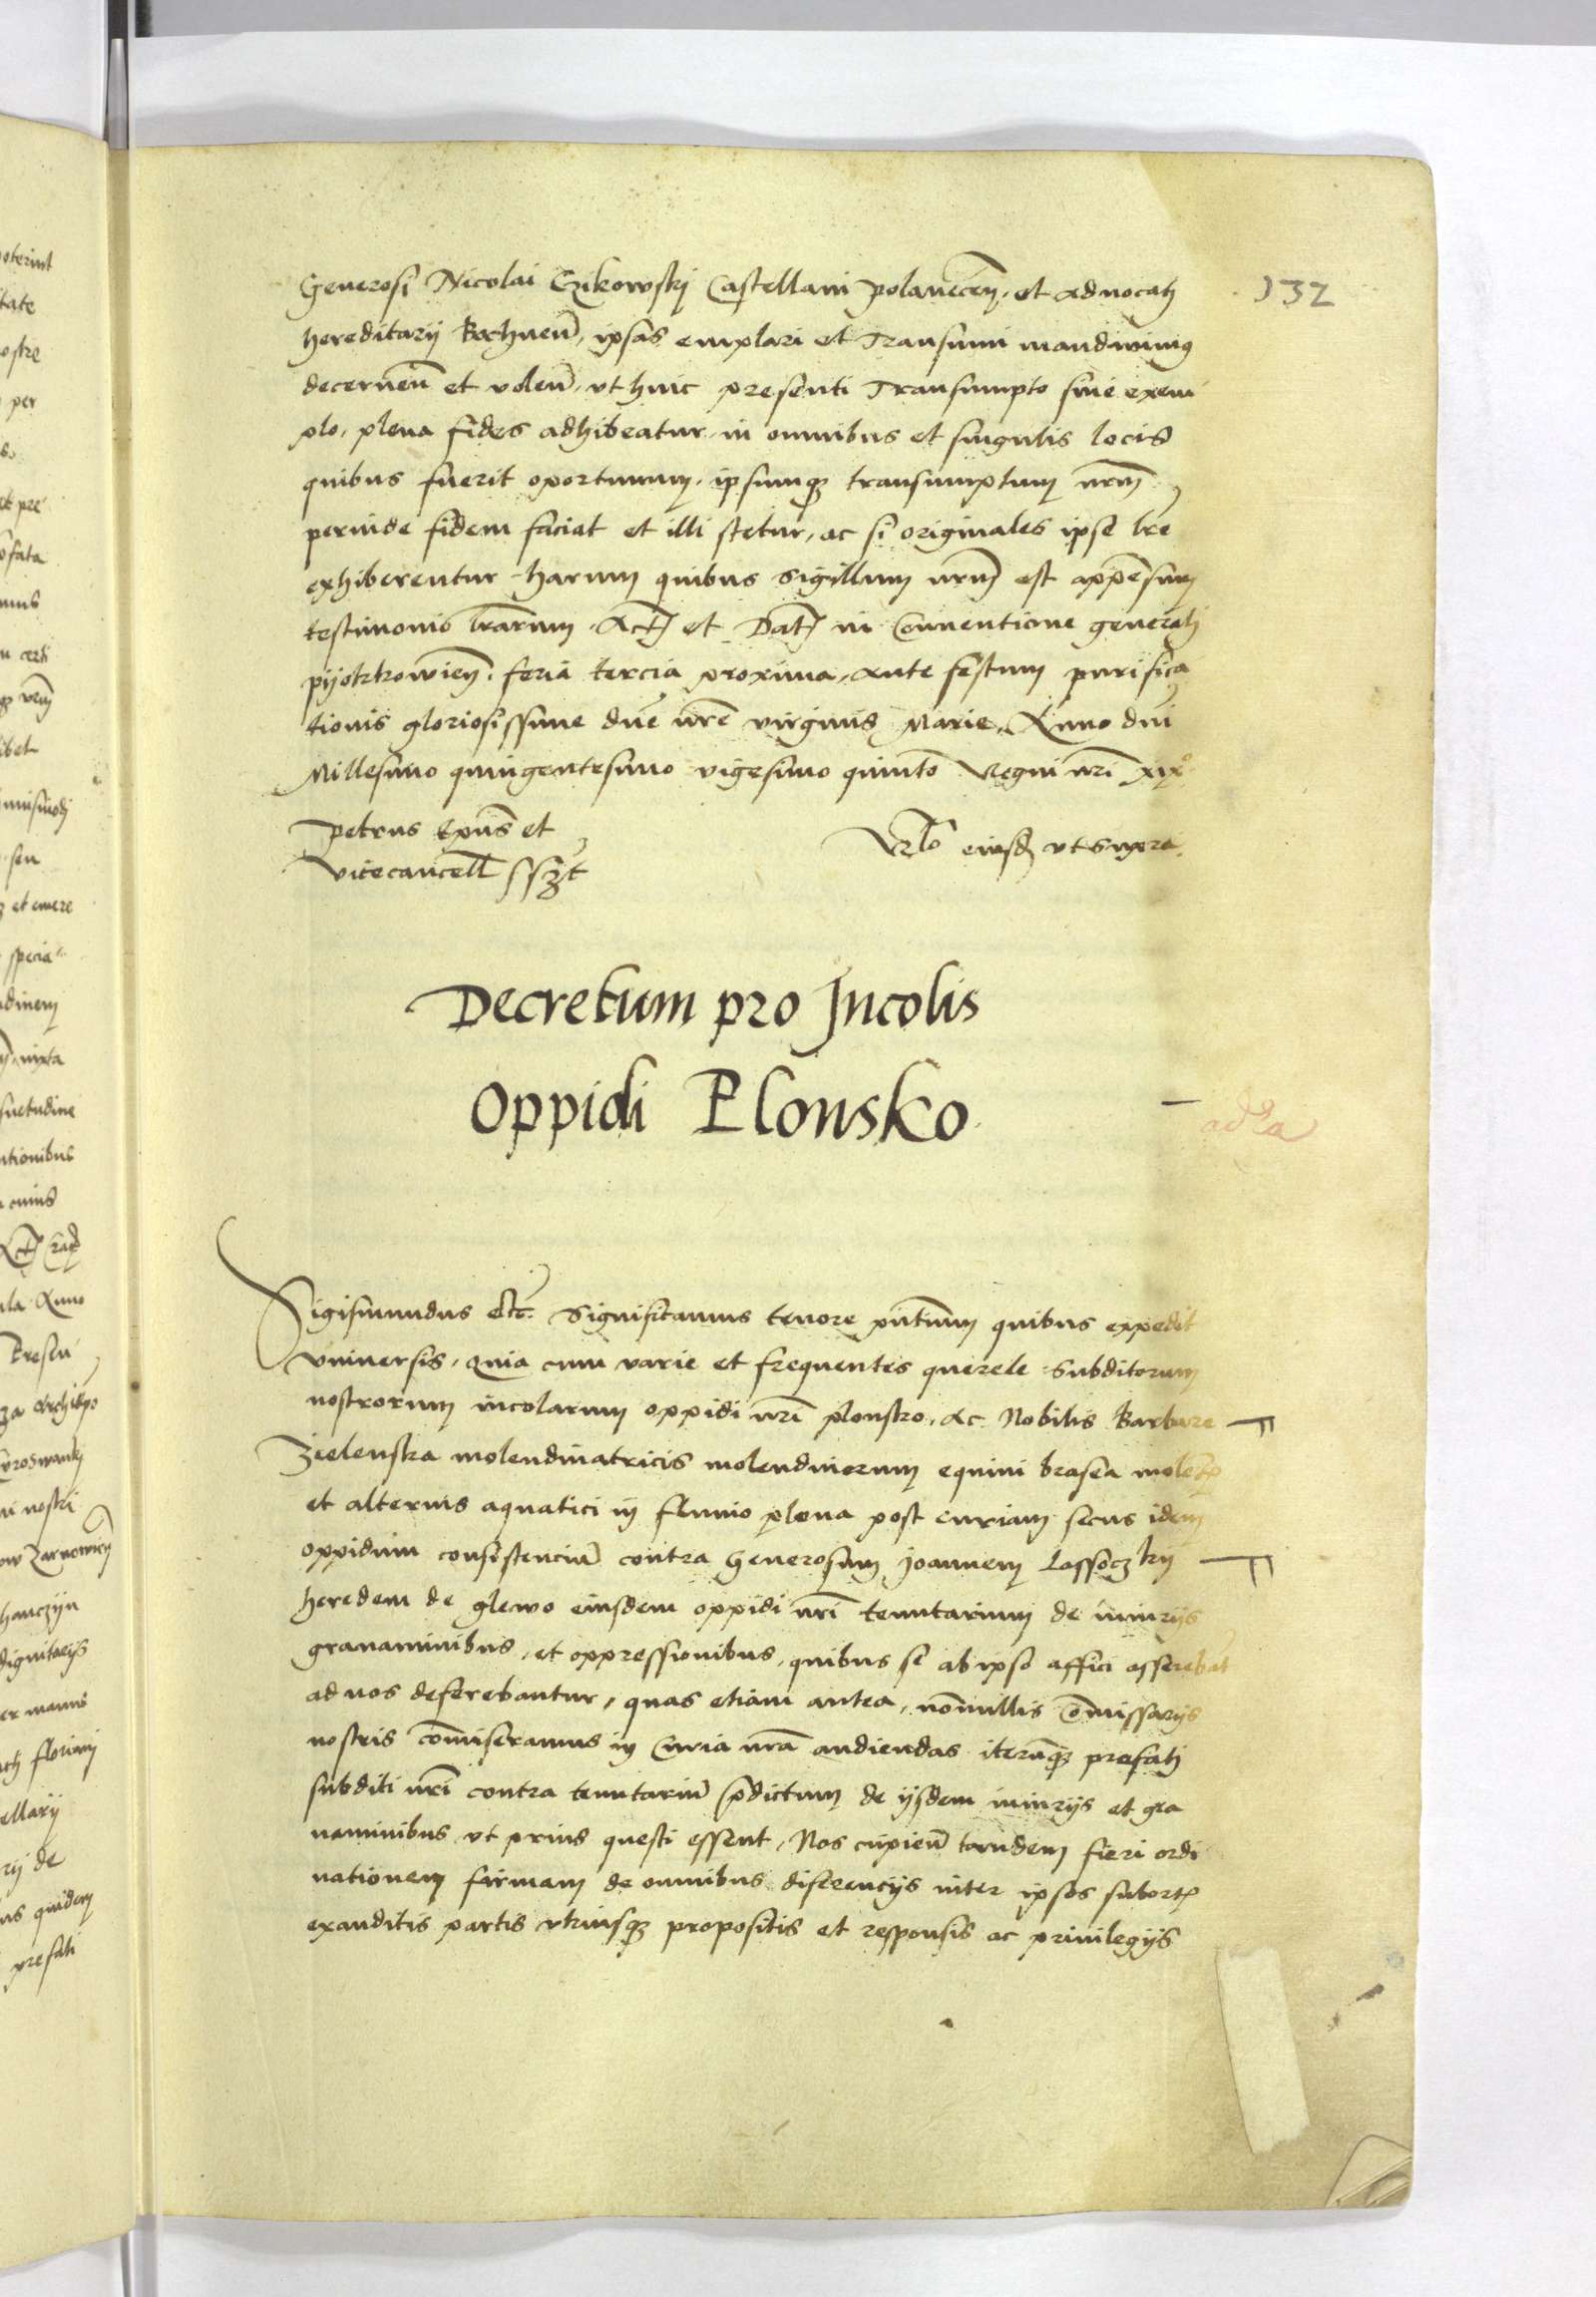 132
Generosi Nicolai Czikowskj Castellani polanecen̄. et advocatj
hereditarij Bochnen̄, ipsas emplari et Transumi mandavimus
decernen̄ et volen̄, vt huic presenti Transumpto sive exem
plo, plena fides adhibeatur, in omnibus et singulis locis
quibus fuerit oportunum, ipsumqꝫ transumptum nr̄m
perinde fidem faciat et illi stetur, ac si originales ipse lr̄e
exhiberentur harum quibus Sigillum nr̄m est appēsum
testimonio lr̄arum. Act̄ et Dat̄ in Conventione generalj
pijotrkowien̄. feria tercia proxima, Ante festum purifica
tionis gloriosissime dn̄e nr̄e virginis Marie, Anno dn̄i
Millesimo quingentesimo vigesimo quinto Regni nr̄i xix°
petrus Ep̄us et
vicecancell̄ sszt
Rl̄o eiusd̄ vt Supra
Decretum pro Incolis
Oppidi Plonsko
Sigismundus etc. Significamus tenore pn̄tium quibus expedit
vniversis, Quia cum varie et frequentes querele Subditorum
nostrorum incolarum oppidi nr̄i plonsko, Ac Nobilis Barbare
Zielenska molendinatricis molendinorum equini brasea molen̄
et alterius aquatici in fluvio plona post curiam secus idem
oppidum consistenciū contra Generosum Joannem Lassoczkij
heredem de glewo eiusdem oppidi nr̄i tenutarium de iniurijs
gravaminibus, et oppressionibus, quibus se ab ipso affici asserebāt
ad nos deferebantur, quas etiam antea, nōnullis cōmissarijs
nostris cōmiseramus in Curia nr̄a audiendas iterūqꝫ prefatj
subditi nr̄i contra tenutariū p̄dictum de ijsdem iniurijs et gra
vaminibus vt prius questi essent, Nos cupien̄ tandem fieri ordi
nationem firmam de omnibus diferencijs inter ipsos subort̄
exauditis partis vtriusqꝫ propositis et responsis ac privilegijs